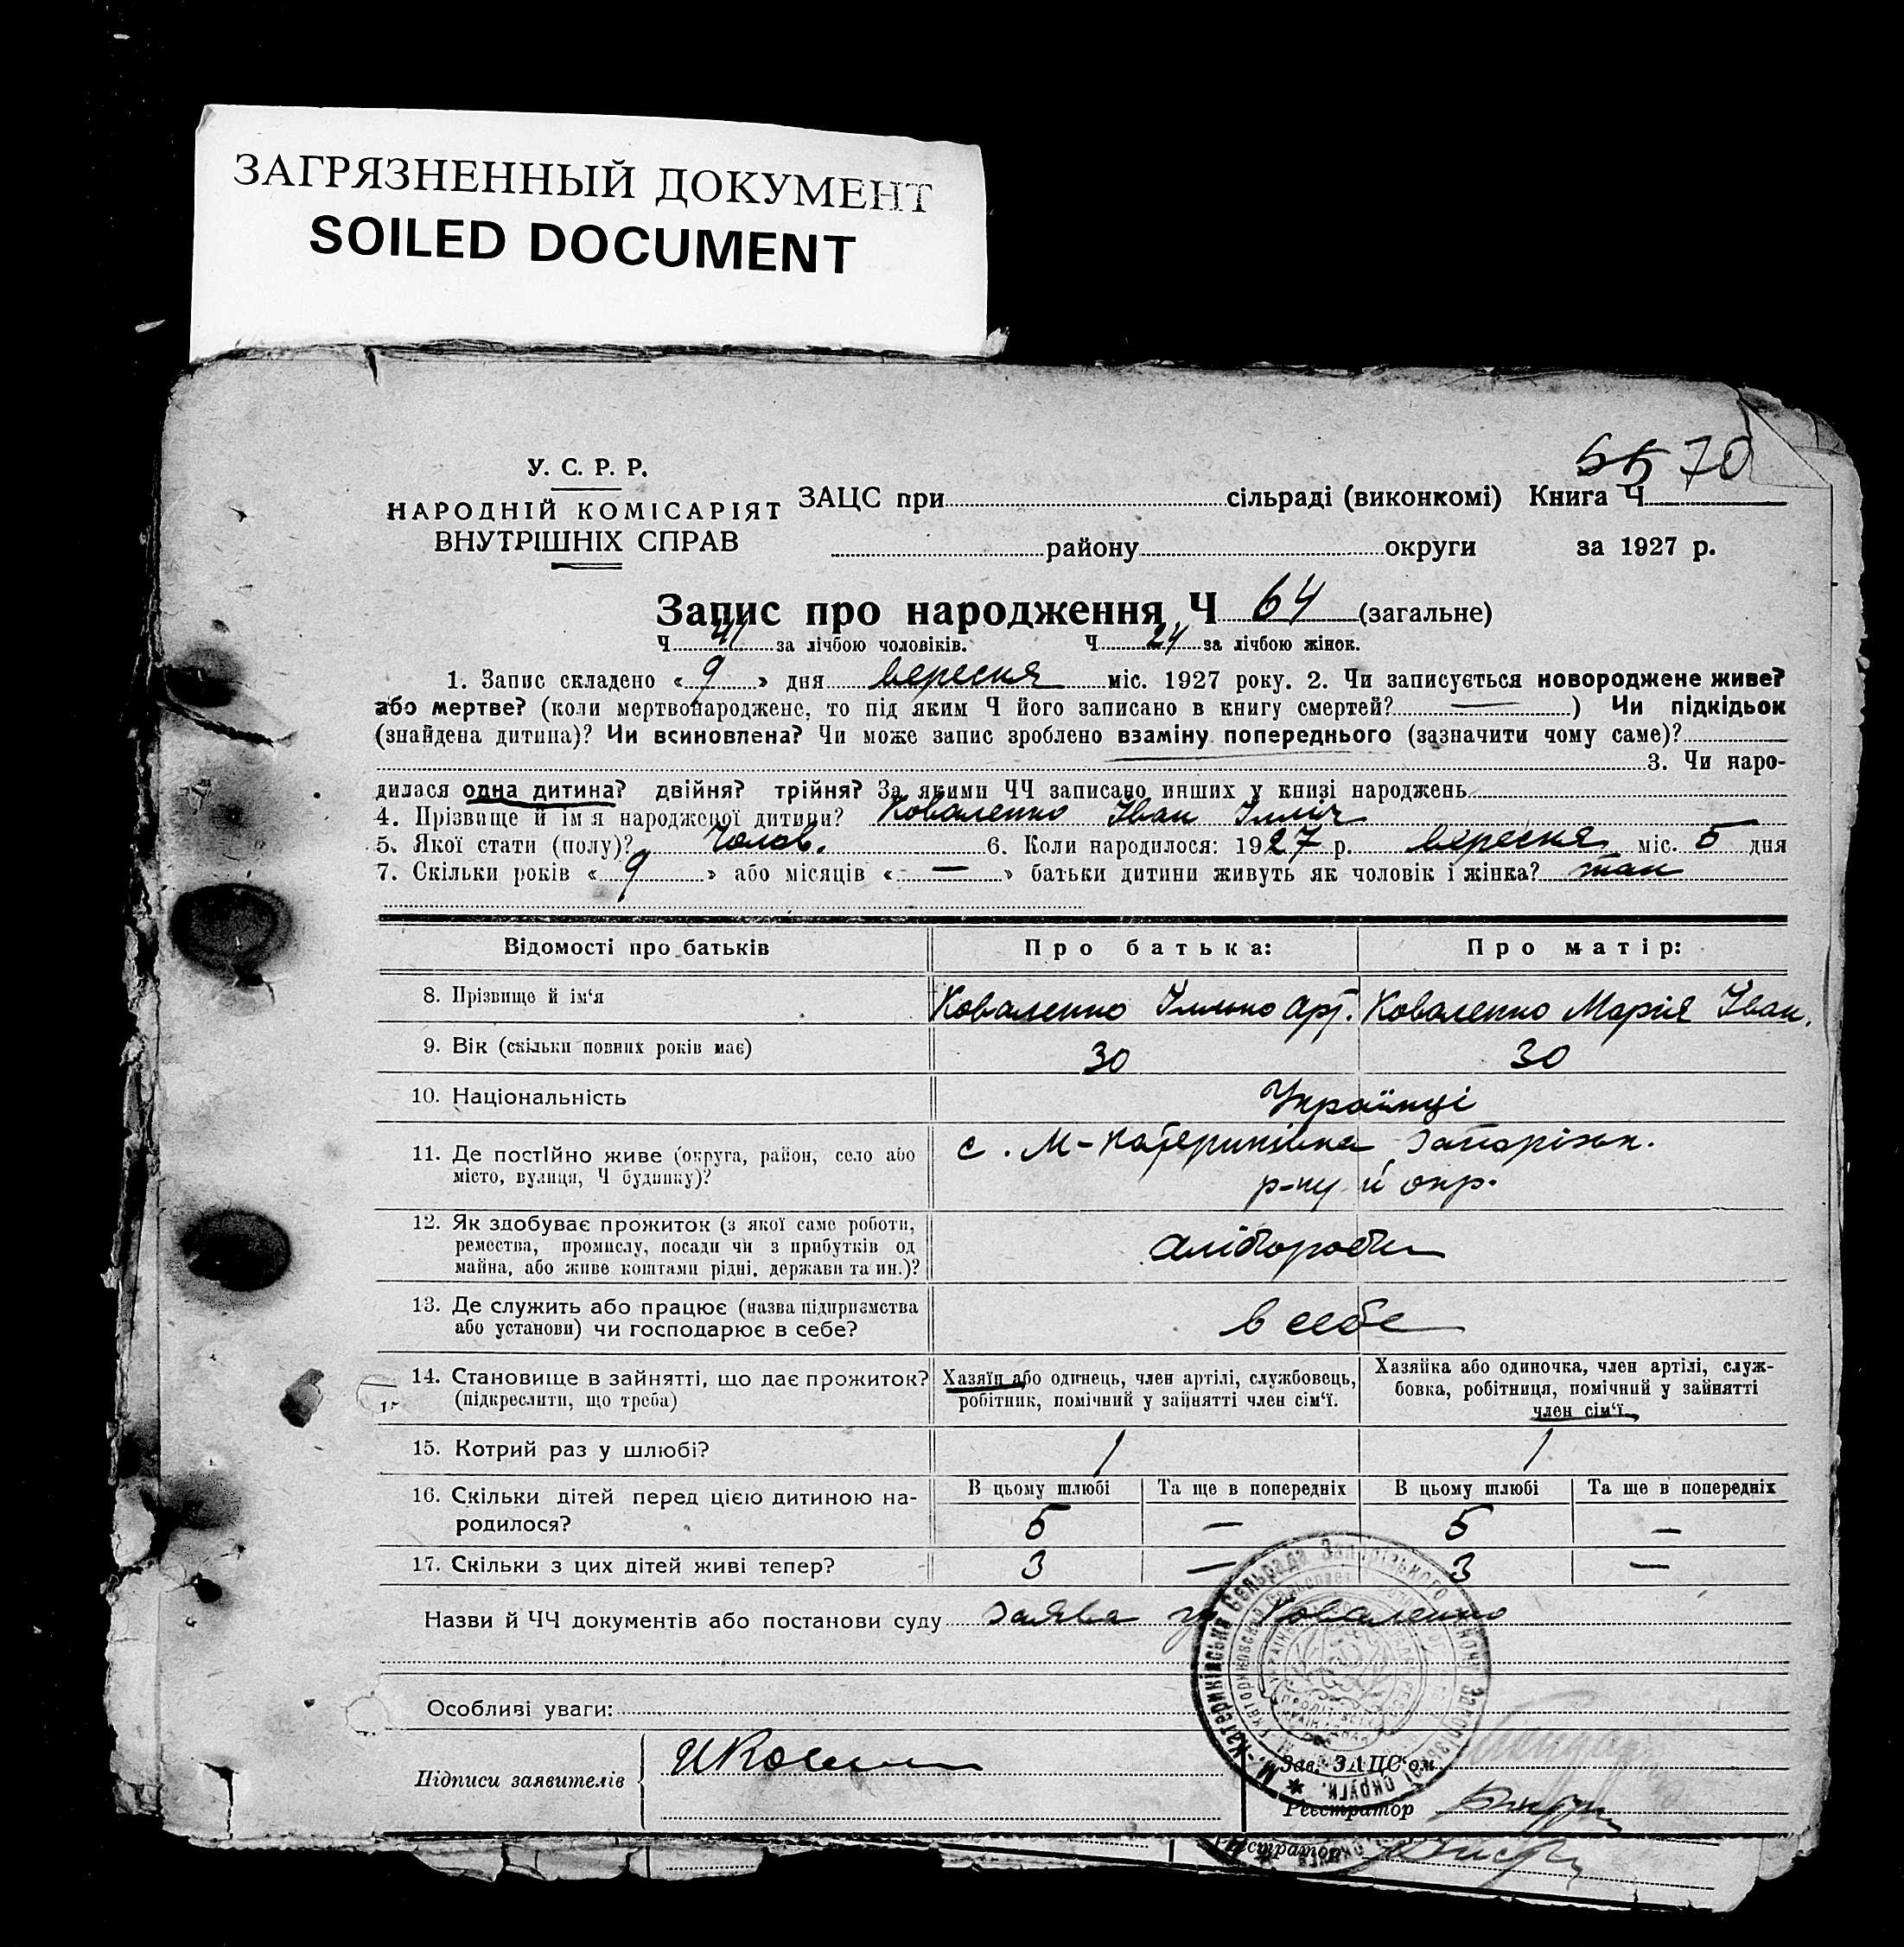 ЗАГРЯЗНЕННЫЙ ДОКУМЕНТ
SOILED DOCUMENT
70
У. С. Р. Р.
НАРОДНІЙ КОМІСАРІЯТ
ВНУТРІШНІХ СПРАВ
ЗАЦС при сільраді (виконкомі) Книга Ч
району округи за 1927 р.
Запис про народження Ч 64 (загальне)
Ч 41 за лічбою чоловіків. Ч 24 за лічбою жінок.
1. Запис складено « 9 » дня вересня міс. 1927 року. 2. Чи записується новороджене живе?
або мертве? (коли мертвонароджене, то під яким Ч його записано в книгу смертей? — ) Чи підкідьок
(знайдена дитина)? Чи всиновлена? Чи може запис зроблено взаміну попереднього (зазначити чому саме)?
3. Чи наро-
дилася одна дитина? двійня? трійня? За якими ЧЧ записано инших у книзі народжень
4. Прізвище й ім'я народженої дитини? Коваленко Іван Ілліч
5. Якої стати (полу)? Чолов. 6. Коли народилося: 1927 р. вересня міс. 5 дня
7. Скільки років « 9 » або місяців « — » батьки дитини живуть як чоловік і жінка? так
Відомості про батьків Про батька: Про матір:
8. Прізвище й ім'я Коваленко Ілько Арт. Коваленко Марія Іван.
9. Вік (скільки повних років має) 30 30
10. Національність Українці
11. Де постійно живе (округа, район, село або
місто, вулиця, Ч будинку)?
с. М-Катеринівка Запорізьк.
р-ну й окр.
12. Як здобуває прожиток (з якої саме роботи,
ремества, промислу, посади чи з прибутків од
майна, або живе коштами рідні, держави та ин.)?
хліборобом
13. Де служить або працює (назва підприємства
або установи) чи господарює в себе?
в себе
14. Становище в зайнятті, що дає прожиток?
(підкреслити, що треба)
Хазяїн або одинець, член артілі, службовець,
робітник, помічний у зайнятті член сім'ї.
Хазяйка або одиночка, член артілі, служ-
бовка, робітниця, помічний у зайнятті
член сім'ї.
15. Котрий раз у шлюбі? 1 1
16. Скільки дітей перед цією дитиною на-
родилося?
В цьому шлюбі Та ще в попередніх В цьому шлюбі Та ще в попередніх
5 — 5 —
17. Скільки з цих дітей живі тепер? 3 — 3 —
Назви й ЧЧ документів або постанови суду заява гр Коваленко
Особливі уваги:
Підписи заявителів
Зав. ЗАЦС'ом
Реєстратор
М.-Катеринівська Сельрада Запорізького
Реєстратор